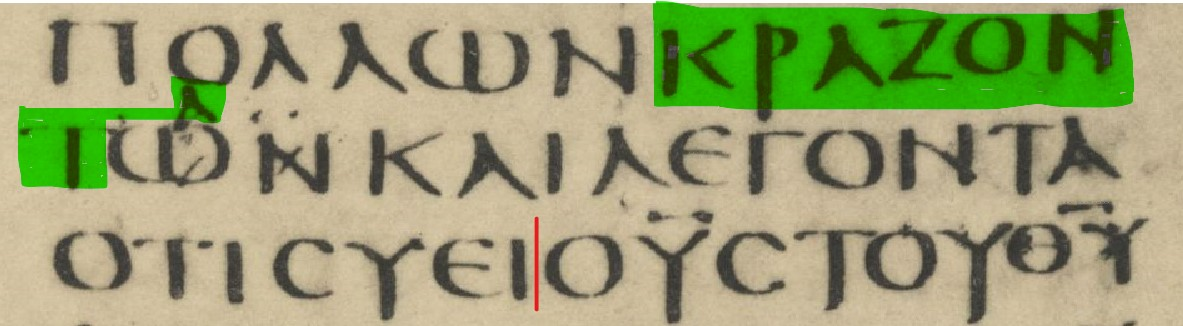 ΠΟΛΛΩΝΚΡΑΖΟΝ
Α
ΤΩΝΚΑΙΛΕΓΟΝΤΑ
ΟΤΙϹΥΕΙΟΥ̅ϹΤΟΥΘ̅Υ̅